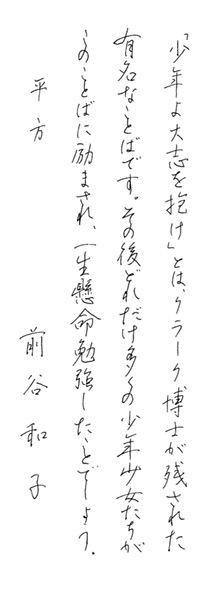 「少年よ大志を抱け」とは、クラーク博士が残された
有名なことばです。その後どれだけ多くの少年少女たちが
このことばに励まされ、一生懸命勉強したことでしょう。
平方 前谷和子